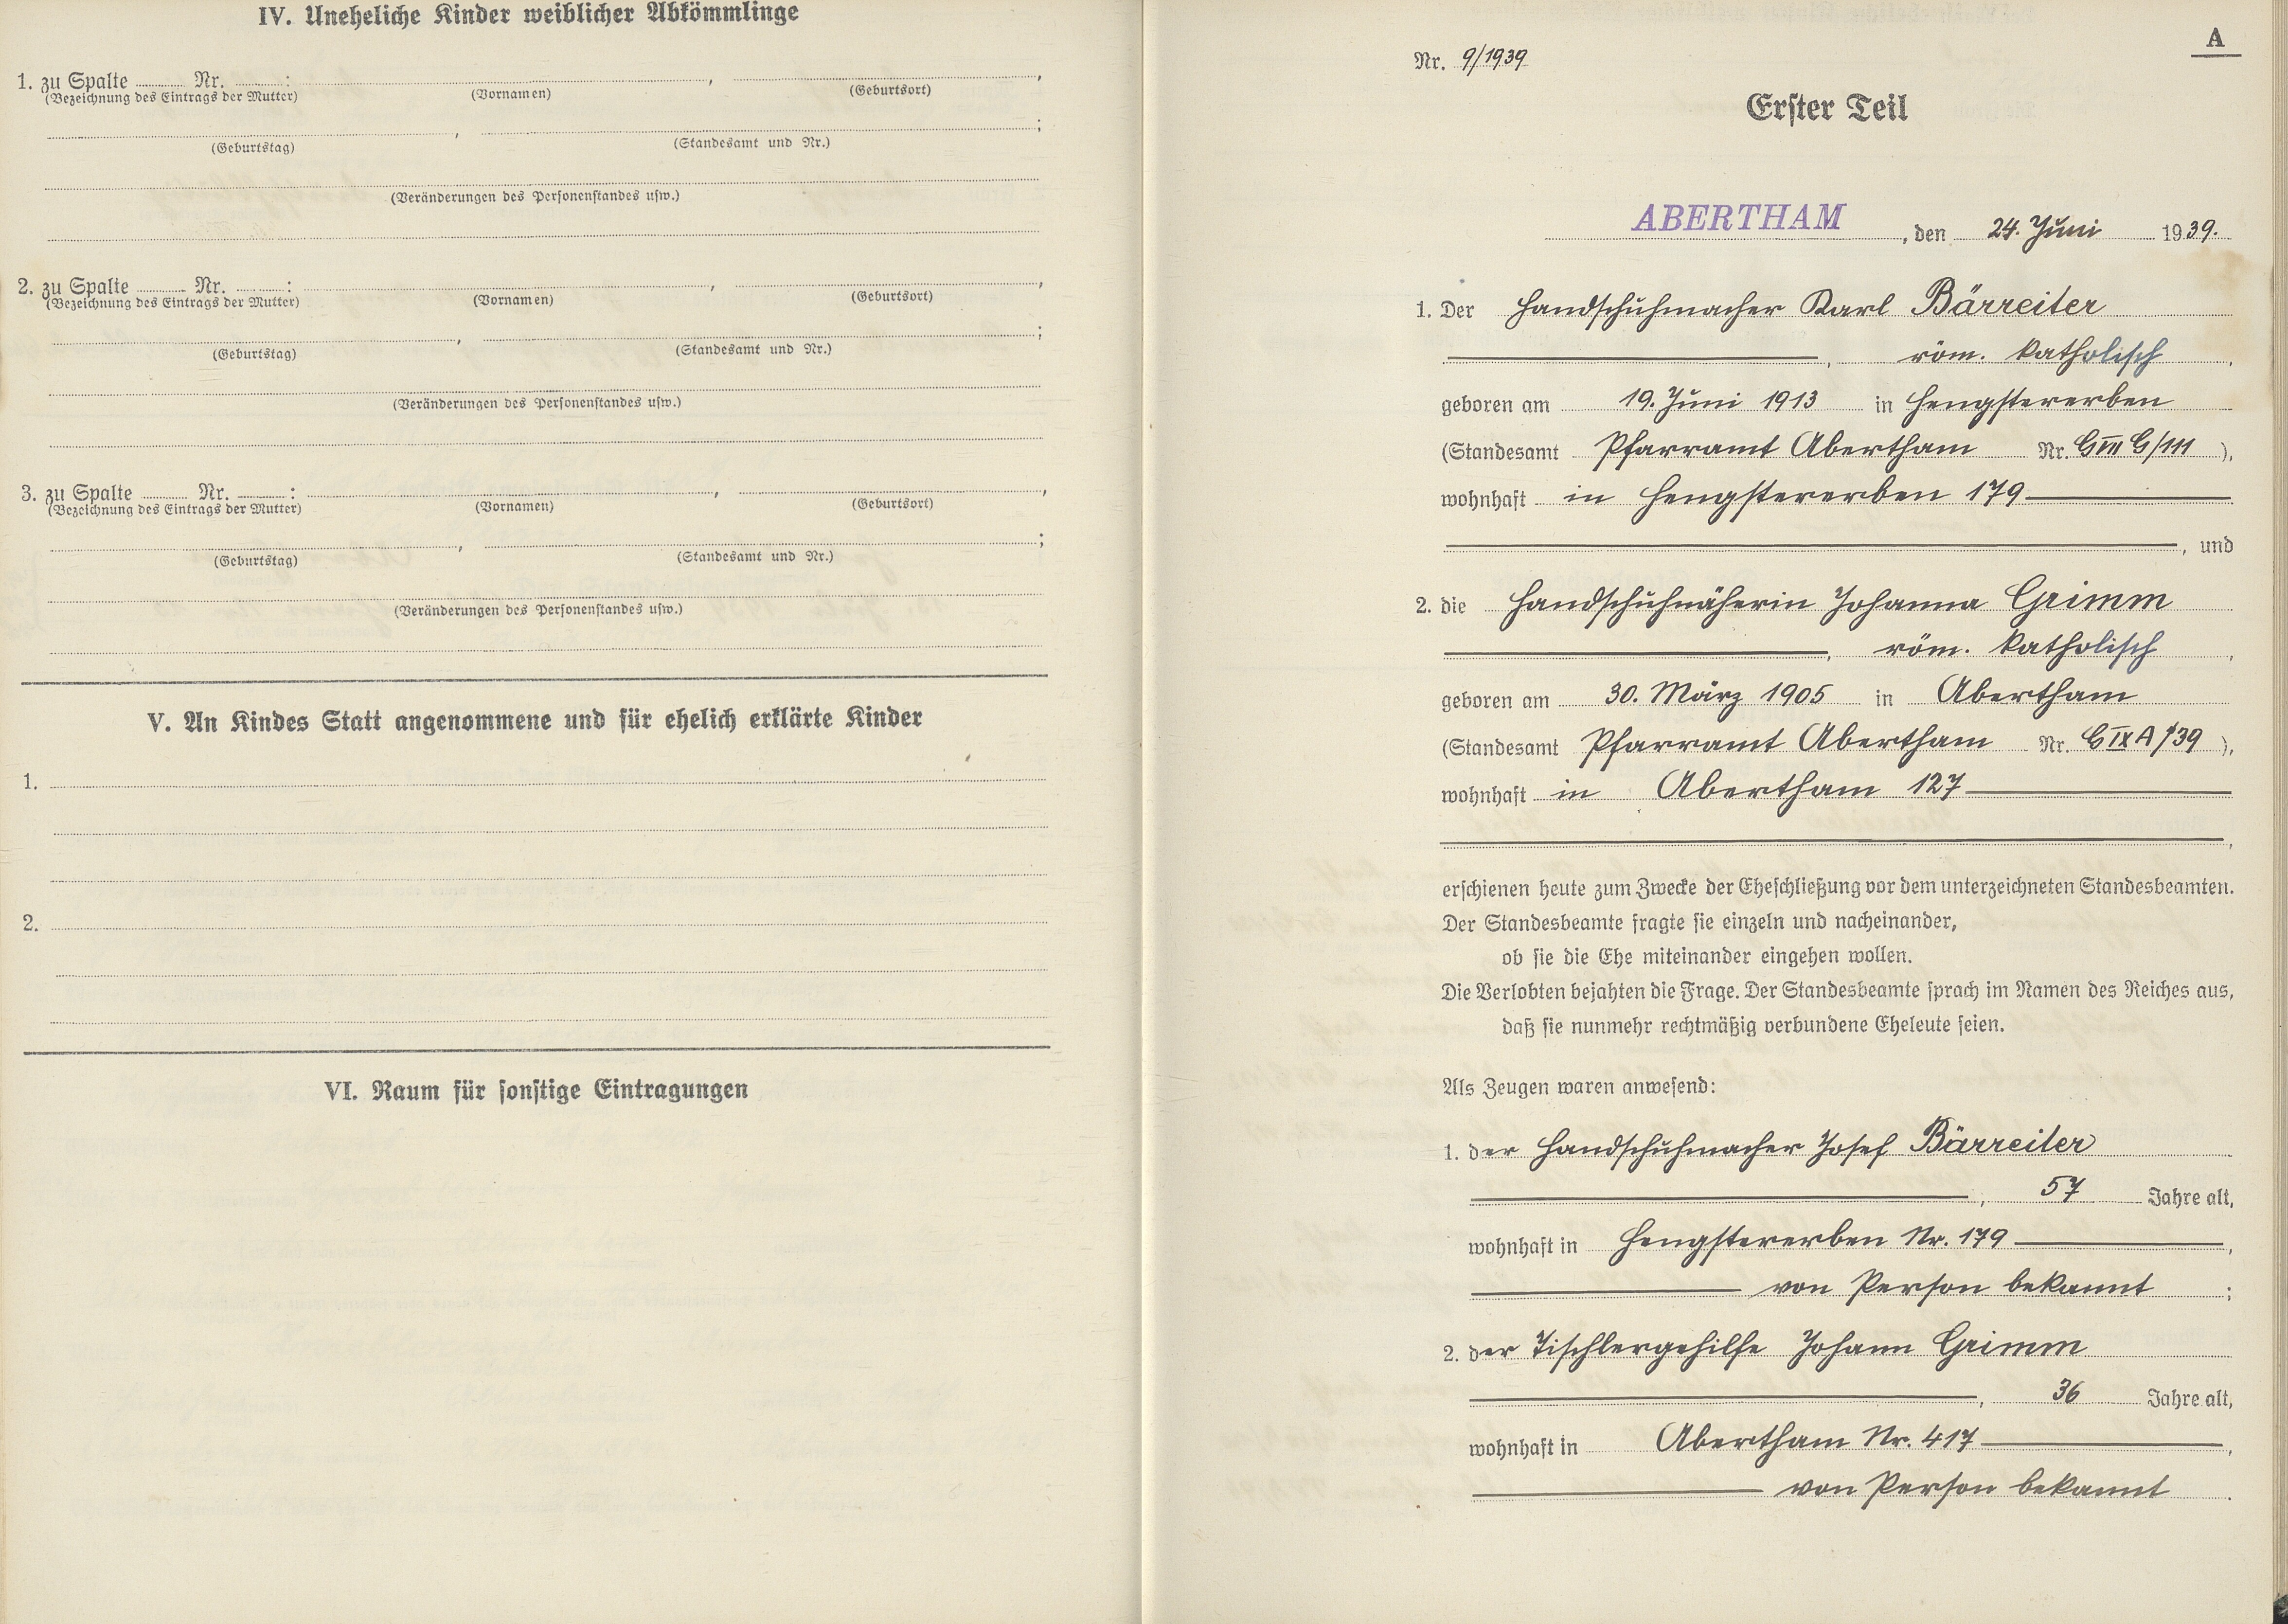 IV. Uneheliche Kinder weiblicher Abkömmlinge
1. zu Spalte ........ Nr. ........:
(Bezeichnung des Eintrags der Mutter) (Vornamen) , (Geburtsort) ,
(Geburtstag) , (Standesamt und Nr.) ;
(Veränderungen des Personenstandes usw.)
2. zu Spalte ........ Nr. ........:
(Bezeichnung des Eintrags der Mutter) (Vornamen) , (Geburtsort) ,
(Geburtstag) , (Standesamt und Nr.) ;
(Veränderungen des Personenstandes usw.)
3. zu Spalte ........ Nr. ........:
(Bezeichnung des Eintrags der Mutter) (Vornamen) , (Geburtsort) ,
(Geburtstag) , (Standesamt und Nr.) ;
(Veränderungen des Personenstandes usw.)
V. An Kindes Statt angenommene und für ehelich erklärte Kinder
1.
2.
VI. Raum für sonstige Eintragungen
A
Nr. 9/1939
Erster Teil
ABERTHAM , den 24. Juni 1939.
1. Der Handschuhmacher Karl Bärreiter
, röm. katholisch ,
geboren am 19. Juni 1913 in Hengstererben
(Standesamt Pfarramt Abertham Nr. G/111 ),
wohnhaft in Hengstererben 179
, und
2. die Handschuhnäherin Johanna Grimm
, röm. katholisch ,
geboren am 30. März 1905 in Abertham
(Standesamt Pfarramt Abertham Nr. IX A/39 ),
wohnhaft in Abertham 127
,
erschienen heute zum Zwecke der Eheschließung vor dem unterzeichneten Standesbeamten.
Der Standesbeamte fragte sie einzeln und nacheinander,
ob sie die Ehe miteinander eingehen wollen.
Die Verlobten bejahten die Frage. Der Standesbeamte sprach im Namen des Reiches aus,
daß sie nunmehr rechtmäßig verbundene Eheleute seien.
Als Zeugen waren anwesend:
1. der Handschuhmacher Josef Bärreiter
, 57 Jahre alt,
wohnhaft in Hengstererben Nr. 179 ,
von Person bekannt ;
2. der Tischlergehilfe Johann Grimm
, 36 Jahre alt,
wohnhaft in Abertham Nr. 417 ,
von Person bekannt .